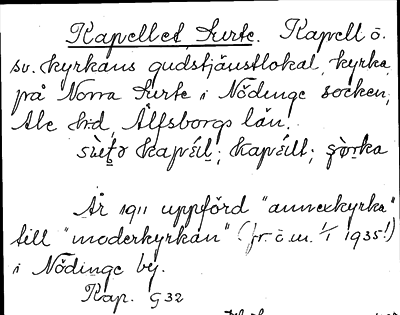 Kapellet, Surte. Kapell o.
sv. kyrkans gudstjänstlokal, kyrka
på Norra Surte i Nödinge socken,
Ale hd, Älfsborgs län.
kapéll;
Är 1911 uppförd "annexkyrka"
till "moderkyrkan" (fr. o. m. 1/1 1935!)
i Nödinge by.
Kap. G 32